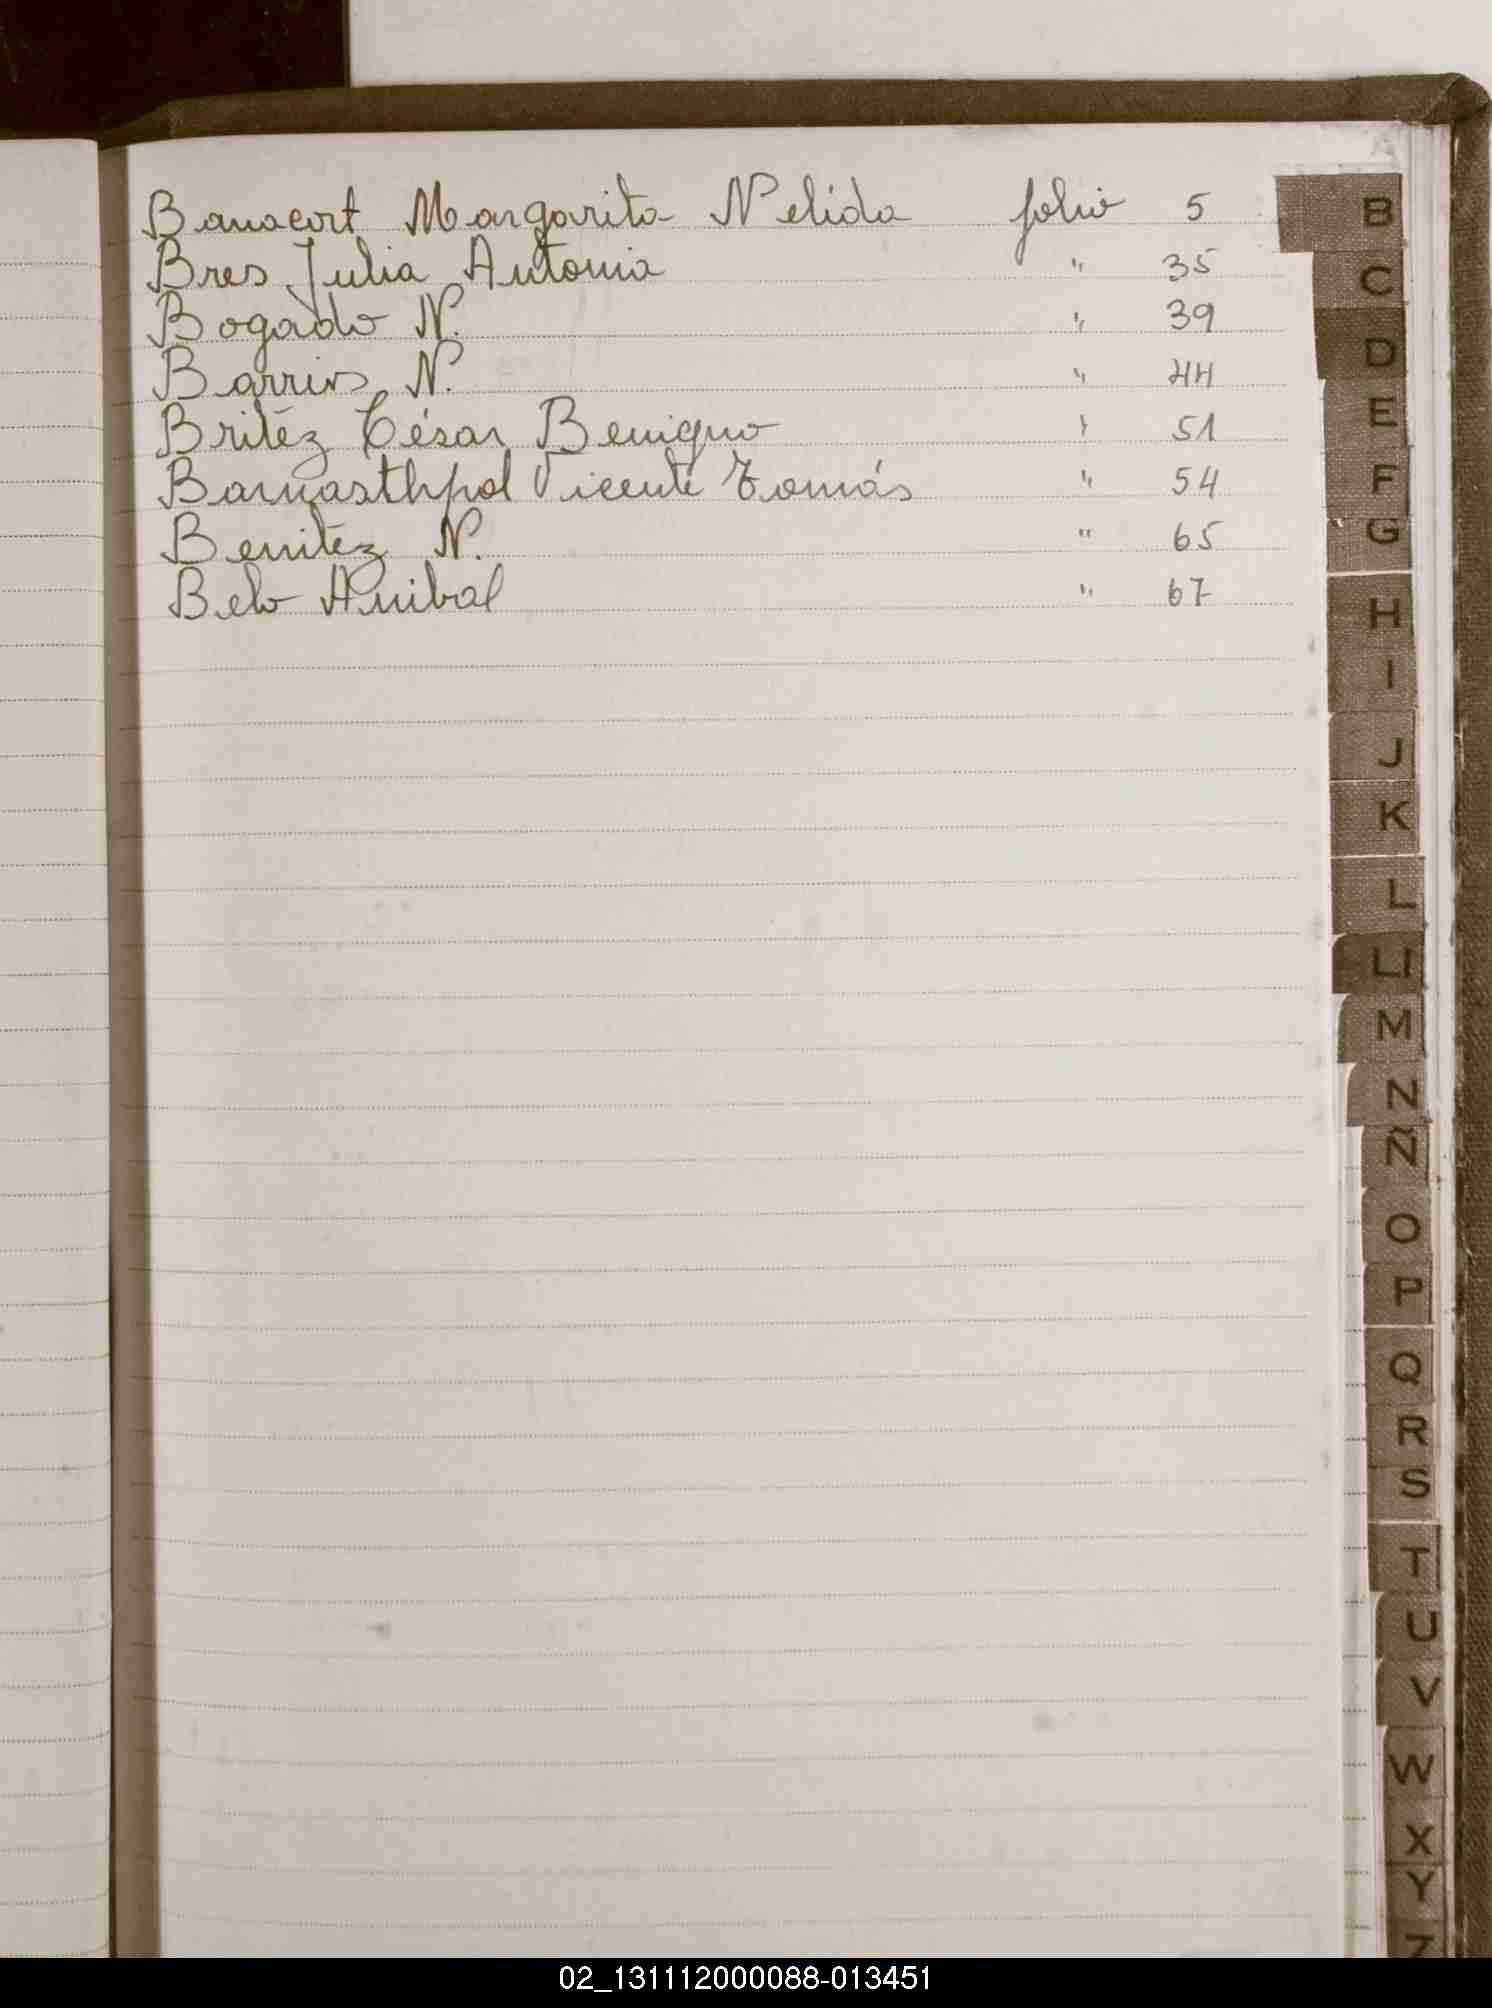 Banacort Margarita Nelida folio 5
Bres Julia Antonia " 35
Bogado N. " 39
Barrios N. " 44
Britez César Benigno " 51
Barnasthpol Vicente Tomás " 54
Benitez N. " 65
Belo Anibal " 67
B
C
D
E
F
G
H
I
J
K
L
Ll
M
N
Ñ
O
P
Q
R
S
T
U
V
W
X
Y
Z
02_131112000088-013451